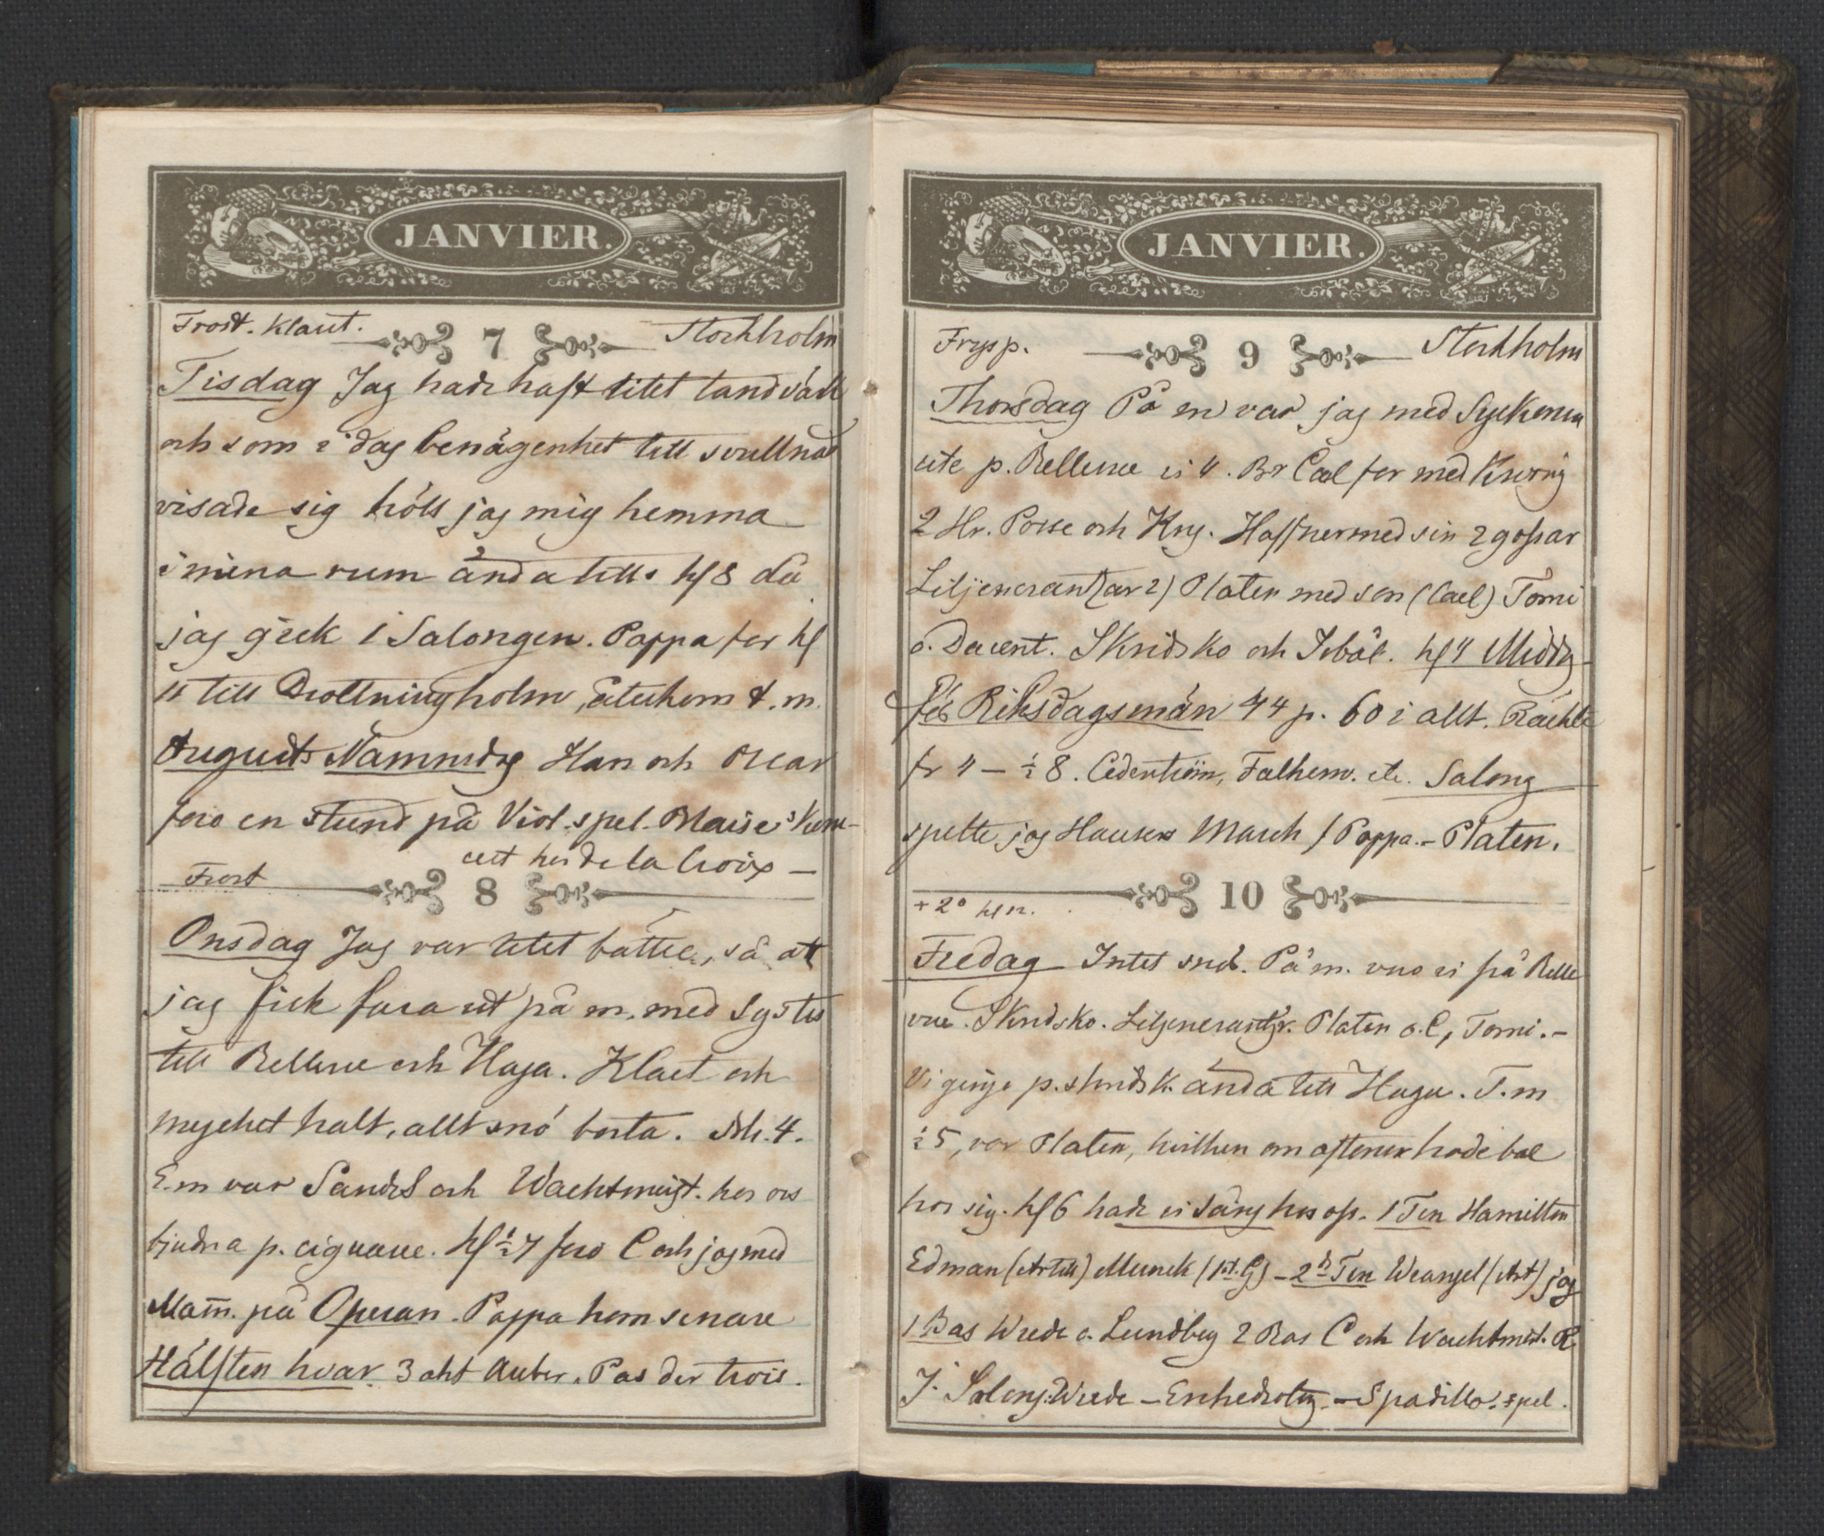 JANVIER.
Frost. klart. 7 Stockholm
Tisdag Jag hade haft litet tandvärk
och som i dag benägenhet till svullnad
visade sig höll jag mig hemma
i mina rum ända till kl 8 då
jag gick i Salongen. Pappa for kl
11 till Drottningholm, återkom t. m.
Augusts Namnsdag Han och Oscar
foro en stund på Viol. spel. Maise's kon-
cert hos de la Croix –
Frost 8
Onsdag Jag var litet bättre, så att
jag fick fara ut på m. med Syster
till Bellevue och Haga. Klart och
mycket halt, allt snö borta. Sk. 4.
E.m var Sandels och Wachtmeist. hos oss
bjudna p. cigvarre. kl ½ 7 foro C och jag med
Mam. på Operan. Pappa kom senare
Hälften hvar 3 akt Auber. Pas der trois.
JANVIER.
Frysp. 9 Stockholm
Thorsdag På m var jag med Syskonen
ute p. Bellevue
2 Hr. Posse och Kng. Haffner med sin 2 gossar
Liljencrantzar 2) Platen med son (Carl) Tomi
o. Ducent. Skridsko och Isbåt. kl 4 Middg
för Riksdagsmän 44 p. 60 i allt. Räckte
fr 4 – ½ 8. Cederström, Falhem. etc. Salong
spelte jag Hausers March f Pappa. – Platen.
+ 2° kl 12. 10
Fredag Intet snö. På m. vuo vi på Belle
vue. Skridsko. Liljencrantzr. Platen o. C, Tomi. –
Vi gingo p. skridsk. ända till Haga. T. m
½ 5, var Platen, hvilken om aftonen hade bal
hos sig. kl 6 hade vi Sång hos op. 1 Ten Hamilton
Edman (Artill) Munck (1st. G) – 2d Ten Wrangel (Art) jag
1 Bas Wrede o. Lundbeg 2 Bas C och Wachtmst. R.
J. Salong. Wrede – Enkedrotg – Spadillo. spel.